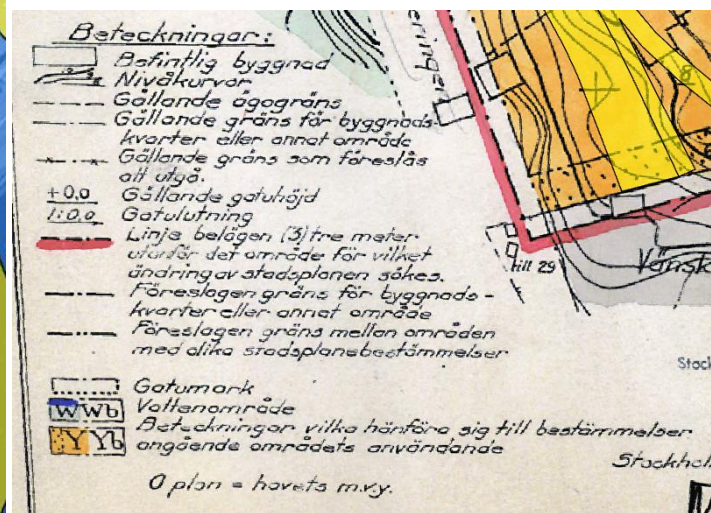 Beteckningar:
Befintlig byggnad
Nivåkurvor
Gällande ägogräns
Gällande gräns för byggnads-
kvarter eller annat område
Gällande gräns som föreslås
att utgå.
+0,0 Gällande gatuhöjd
1:0,0 Gatulutning
Linje belägen (3) tre meter
utanför det område för vilket
ändring av stadsplanen sökes.
Föreslagen gräns för byggnads-
kvarter eller annat område
Föreslagen gräns mellan områden
med olika stadsplanebestämmelser
Gatumark
W Wb Vattenområde
Y Yb Beteckningar vilka hänföra sig till bestämmelser
angående områdets användande
0 plan = havets m.v.y.
eringen
8
till 29
Vänsk
Stock
Stockhol